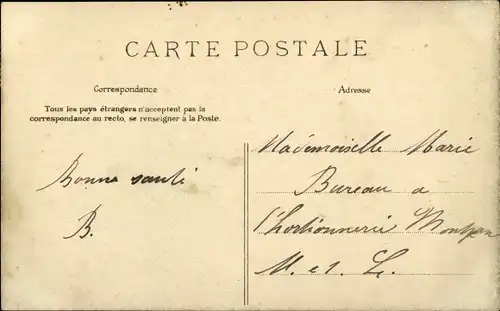 CARTE POSTALE
Correspondance
Adresse
Tous les pays étrangers n'acceptent pas la
correspondance au recto, se renseigner à la Poste.
Bonne santé
B.
Mademoiselle Marie
Bureau a
M. et L.